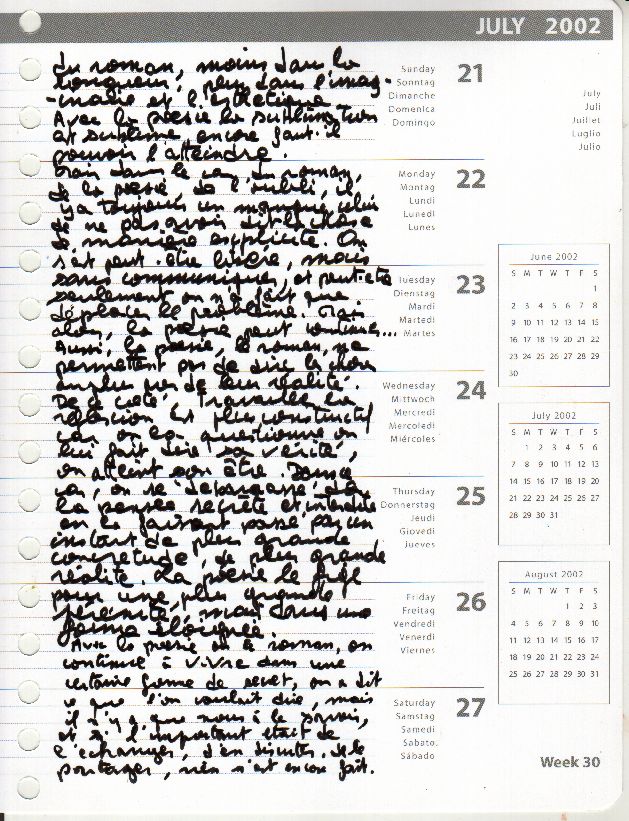 JULY 2002
du roman, moins dans la
longueur, plus dans l'imag-
-inaire et l'esthétique
Avec la poésie la sublimation
est sublime encore faut-il
pouvoir l'atteindre.
Mais dans le cas du roman,
de la poésie, de l'oubli, il
y a toujours un manque, celui
de ne pas avoir dit la chose
de manière explicite. On
s'est peut-être libéré, mais
sans communiquer, et peut-être
seulement on n'a fait que
déplacer le problème. Mais
alors, la poésie peut continuer...
Aussi, la poésie, le roman, ne
permettent pas de dire la chose
en plus de leur réalité.
De ce côté, travailler la
réflexion est plus constructif
car on en questionne on
lui fait dire sa vérité,
on atteint son être. Dans ce
cas, on se débarrasse de
la pensée secrète et interdite
en la faisant passer par un
instant de plus grande
concrétude, de plus grande
réalité. La poésie le fige
pour une plus grande
sérénité, mais dans une
forme éloignée.
Avec la poésie ou le roman, on
continue à vivre dans une
certaine forme de secret, on a dit
ce que l'on voulait dire, mais
il n'y a que nous à le savoir,
et si l'important était de
l'échanger, d'en discuter, de le
partager, rien n'est encore fait.
Sunday
Sonntag
Dimanche
Domenica
Domingo
21
Monday
Montag
Lundi
Lunedi
Lunes
22
Tuesday
Dienstag
Mardi
Martedi
Martes
23
Wednesday
Mittwoch
Mercredi
Mercoledi
Miércoles
24
Thursday
Donnerstag
Jeudi
Giovedi
Jueves
25
Friday
Freitag
Vendredi
Venerdi
Viernes
26
Saturday
Samstag
Samedi
Sabato
Sábado
27
July
Juli
Juillet
Luglio
Julio
June 2002
S M T W T F S
1
2 3 4 5 6 7 8
9 10 11 12 13 14 15
16 17 18 19 20 21 22
23 24 25 26 27 28 29
30
July 2002
S M T W T F S
1 2 3 4 5 6
7 8 9 10 11 12 13
14 15 16 17 18 19 20
21 22 23 24 25 26 27
28 29 30 31
August 2002
S M T W T F S
1 2 3
4 5 6 7 8 9 10
11 12 13 14 15 16 17
18 19 20 21 22 23 24
25 26 27 28 29 30 31
Week 30